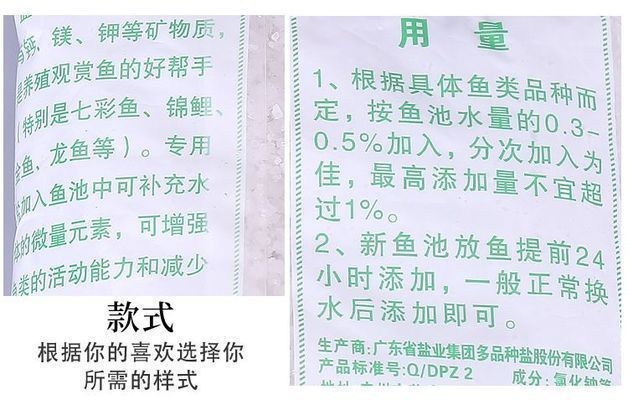 钙、镁、钾等矿物质，
养殖观赏鱼的好帮手
（特别是七彩鱼、锦鲤、
金鱼、龙鱼等）。专用
加入鱼池中可补充水
的微量元素，可增强
类的活动能力和减少
款式
根据你的喜欢选择你
所需的样式
用量
1、根据具体鱼类品种而
定，按鱼池水量的0.3-
0.5%加入，分次加入为
佳，最高添加量不宜超
过1%。
2、新鱼池放鱼提前24
小时添加，一般正常换
水后添加即可。
生产商：广东省盐业集团多品种盐股份有限公司
产品标准号：Q/DPZ 2 成分：氯化钠等